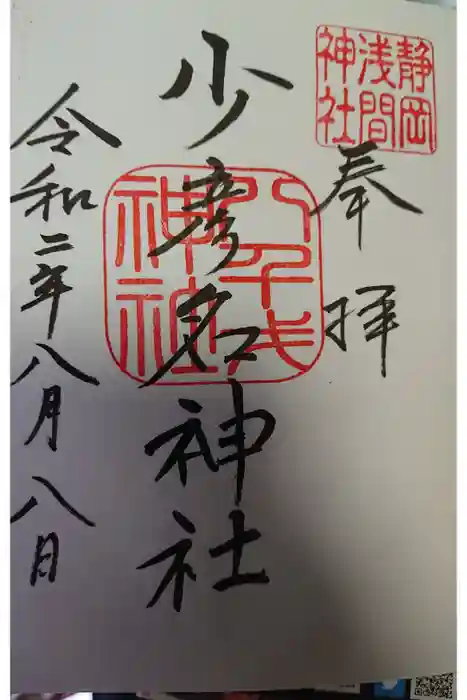 奉拝
静岡
浅間
神社
少彦名神社
八千戈
神社
令和二年八月八日